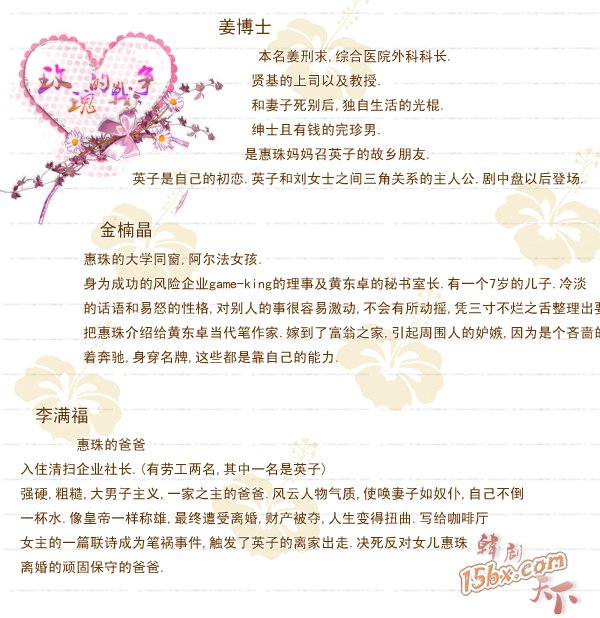 姜博士
玫瑰的战争
本名姜刑求,综合医院外科科长.
贤基的上司以及教授.
和妻子死别后,独自生活的光棍.
绅士且有钱的完珍男.
是惠珠妈妈召英子的故乡朋友.
英子是自己的初恋.英子和刘女士之间三角关系的主人公.剧中盘以后登场.
金楠晶
惠珠的大学同窗,阿尔法女孩.
身为成功的风险企业game-king的理事及黄东卓的秘书室长.有一个7岁的儿子.冷淡
的话语和易怒的性格,对别人的事很容易激动,不会有所动摇,凭三寸不烂之舌整理出要
把惠珠介绍给黄东卓当代笔作家.嫁到了富翁之家,引起周围人的妒嫉,因为是个吝啬的
着奔驰,身穿名牌,这些都是靠自己的能力.
李满福
惠珠的爸爸
入住清扫企业社长.(有劳工两名,其中一名是英子)
强硬,粗糙,大男子主义,一家之主的爸爸.风云人物气质,使唤妻子如奴仆,自己不倒
一杯水.像皇帝一样称雄,最终遭受离婚,财产被夺,人生变得扭曲.写给咖啡厅
女主的一篇联诗成为笔祸事件,触发了英子的离家出走.决死反对女儿惠珠
离婚的顽固保守的爸爸.
韩剧
15bx.com
天下